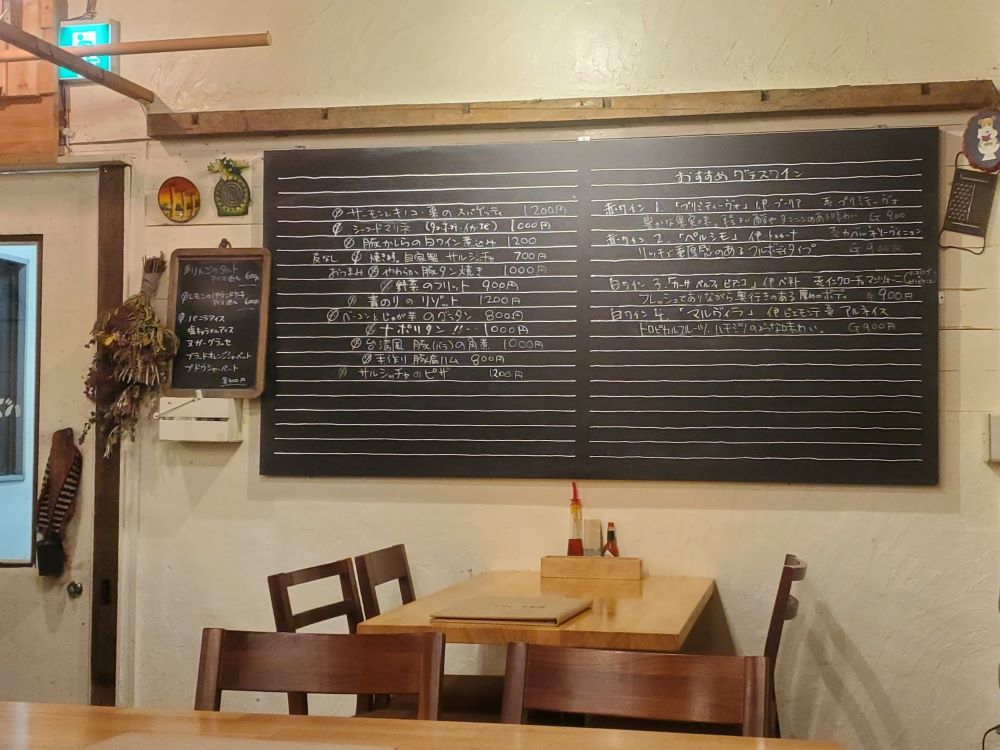 りんごのタルト
アイス添え 600円
レモンのパウンドケーキ
アイス添え 600円
バニラアイス
塩キャラメルアイス
ヌガーグラッセ
ブラッドオレンジシャーベット
ブドウシャーベット
各400円
サーモンとキノコ・栗のスパゲッティ 1200円
シーフードマリネ (タコ・ホタテ・イカ・エビ) 1000円
豚かたらの白ワイン煮込み 1200
皮なし 燻き 自家製 サルシッチャ 700円
おつまみ やわらかい豚タン焼き 1000円
野菜のフリット 900円
青のりのリゾット 1200円
ベーコンとじゃが芋のグラタン 800円
ナポリタン!!… 1000円
台湾風 豚(バラ)の角煮 1000円
手作り 豚肩ハム 800円
サルシッチャのピザ 1200円
おすすめグラスワイン
赤ワイン 1.「プリミティーヴォ」伊 プーリア プリミティーヴォ
豊かな果実味、程よい酸とタンニンのある味わい G 900
赤ワイン 2.「ペルシモ」伊 カベルネソーヴィニョン
リッチで重厚感のあるフルボディタイプ G 900円
白ワイン 3.
フレッシュでありながら奥行きのある厚めのボディ G 900円
白ワイン 4.「マルヴィラ」伊 ピエモンテ アルネイス
トロピカルフルーツ、ハチミツのような味わい。 G 900円